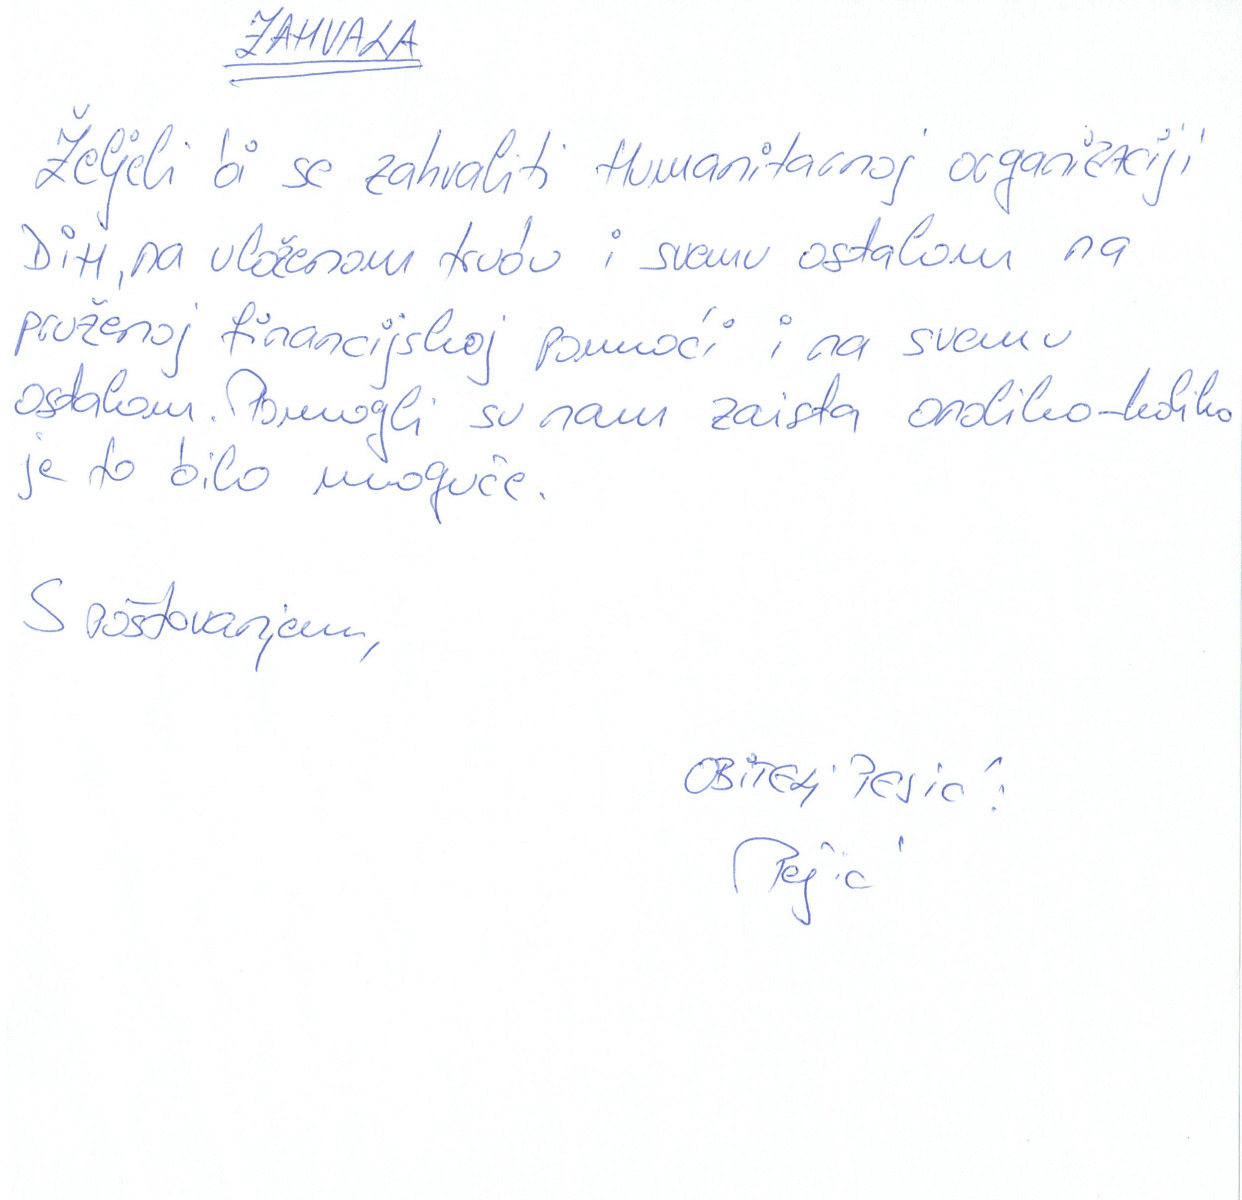 ZAHVALA
Željeli bi se zahvaliti Humanitarnoj organizaciji
DiH, na uloženom trudu i svemu ostalom na
pruženoj financijskoj pomoći i na svemu
ostalom. Pomogli su nam zaista onoliko-koliko
je to bilo moguče.
S poštovanjem,
OBiTELJ